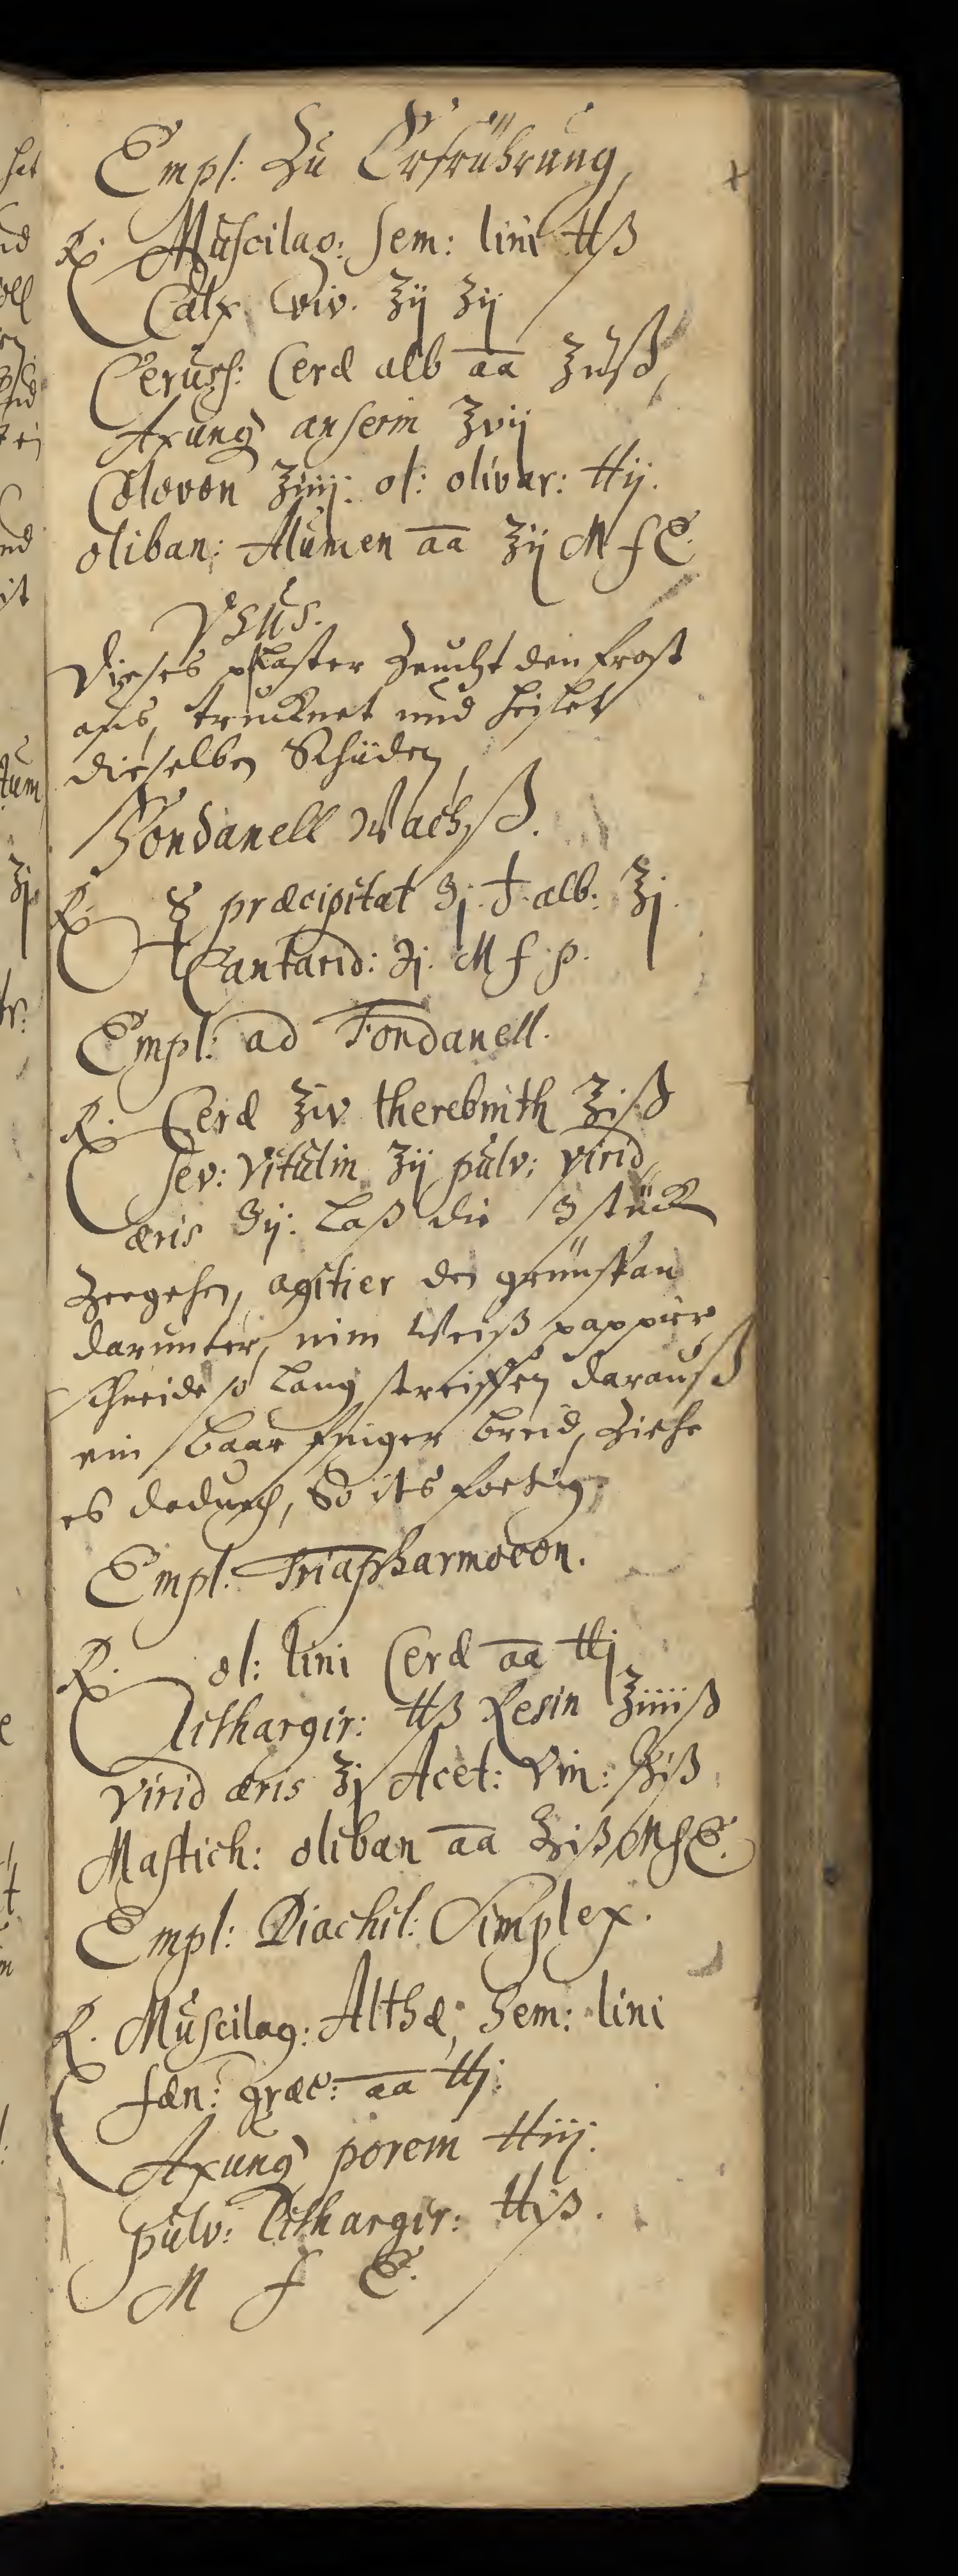 Empl: Zu Erfrührung,
℞. Muscilag: sem: lini ℔ß
Calx Viv. ʒij ʒij
Ceruss: Ceræ alb aa ℥iiß,
Axung anserin ℥vij
Colovon ℥iiij: ol: olivar: ℔ij.
oliban: Alumen aa ℥ij M f E.
Vsus.
Dieses plaster Zeucht den frost
aus, trucknet und heilet
dieselben Schäden,
Fondanell Wachß.
℞. ☿ præcipitat ʒj. ♁. alb: ℥j.
Cantarid: ʒj. M f p.
Empl: ad Fondanell.
℞. Ceræ ℥iv therebinth ℥iß
sev: Vitulin ℥ij pulv: virid,
æris ʒij: Laß die 3 stück
Zergehen, agitier den grünspan
darunter, nim Weiß pappier,
schneide so lang streiffen darauß
ein baar finger breid, Ziehe
es dadurch, So its fertig,
Empl: Triapharmocon.
℞. ol: lini Ceræ aa ℔j
Lithargir: ℔ß Resin ℥iiiiß
virid æris ℥j Acet: Vin: ℔iß
Mastich: oliban aa ℥iß M f E.
Empl: Diachil: Simplex.
℞. Muscilag: Althæ, Sem: lini
fæn: græc: aa ℔j:
Axung porem ℔iij.
pulv: Lithargir: ℔jß.
M f E.